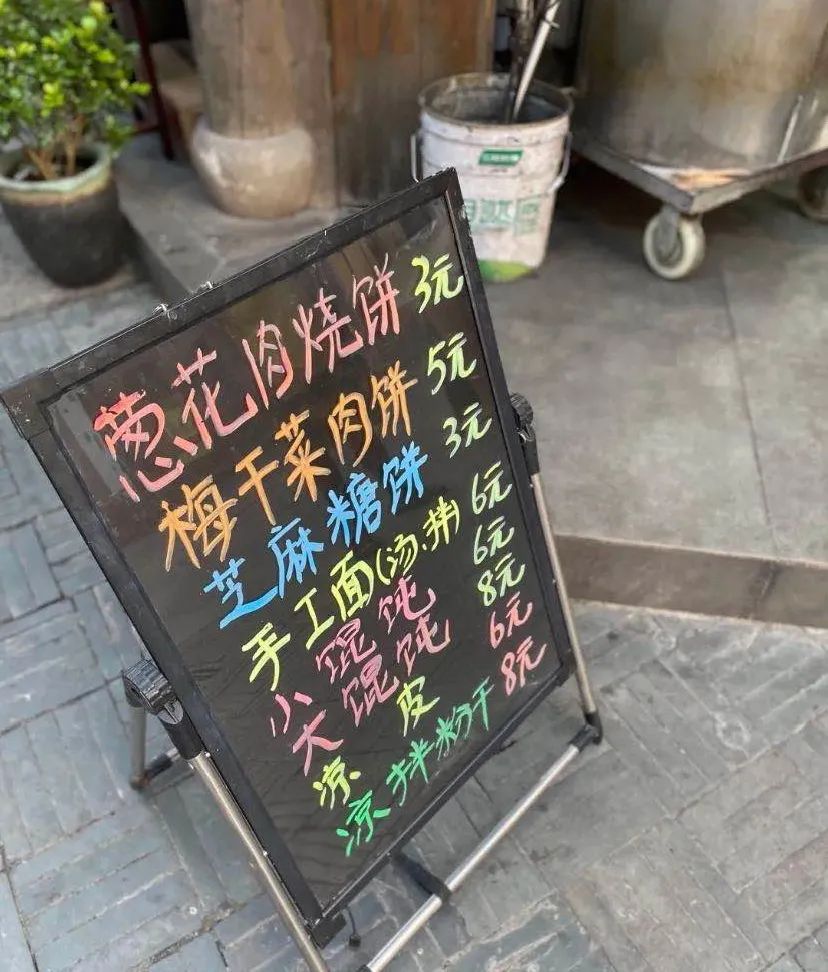 葱花肉烧饼 3元
梅干菜肉饼 5元
芝麻糖饼 3元
手工面(汤.拌) 6元
小馄饨 6元
大馄饨 8元
凉皮 6元
凉拌粉干 8元